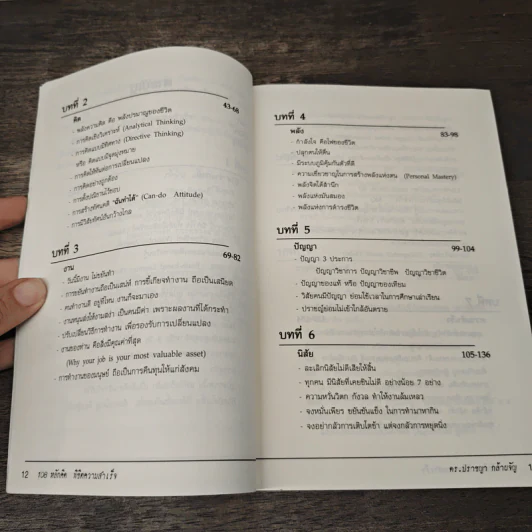 บทที่ 2
คิด 43-68
- พลังความคิด คือ พลังปรมาณูของชีวิต
- การคิดเชิงวิเคราะห์ (Analytical Thinking)
- การคิดแบบมีทิศทาง (Directive Thinking)
หรือ คิดแบบมีจุดมุ่งหมาย
- การคิดให้ทันต่อการเปลี่ยนแปลง
- การคิดอย่างถูกต้อง
- การสร้างทัศนคติ "ฉันทำได้" (Can-do Attitude)
- การมีวิสัยทัศน์อันกว้างไกล
บทที่ 3
งาน 69-82
- วันนี้มีงาน ไม่ขยันทำ
- การขยันทำงานถือเป็นเสน่ห์ การขี้เกียจทำงาน ถือเป็นเสนียด
- คนทำงานดี อยู่ที่ไหน งานก็จะมาเอง
- งานหนุนส่งให้งามสง่า เป็นคนมีค่า เพราะผลงานที่ได้กระทำ
- ปรับเปลี่ยนวิธีการทำงาน เพื่อรองรับการเปลี่ยนแปลง
- งานของท่าน คือสิ่งมีคุณค่าที่สุด
(Why your job is your most valuable asset)
- การทำงานของมนุษย์ ถือเป็นการคืนทุนให้แก่สังคม
12 108 หลักคิด พิชิตความสำเร็จ
บทที่ 4
พลัง 83-98
- กำลังใจ คือไฟของชีวิต
- ปลุกตนให้ตื่น
- มีระบบภูมิคุ้มกันตัวที่ดี
- ความเชี่ยวชาญในการสร้างพลังแห่งตน (Personal Mastery)
- พลังจิตใต้สำนึก
- พลังแห่งมันสมอง
- พลังแห่งการดำรงชีวิต
บทที่ 5
ปัญญา 99-104
- ปัญญา 3 ประการ
ปัญญาวิชาการ ปัญญาวิชาชีพ ปัญญาวิชาชีวิต
- ปัญญาของแท้ หรือ ปัญญาของเทียม
- วิสัยคนมีปัญญา ย่อมใช้เวลาในการศึกษาเล่าเรียน
- ปราชญ์ย่อมไม่เข้าใกล้อันตราย
บทที่ 6
นิสัย 105-136
- ละเลิกนิสัยไม่ดีเสียให้สิ้น
- ทุกคน มีนิสัยที่เคยชินไม่ดี อย่างน้อย 7 อย่าง
- ความหวั่นวิตก กังวล ทำให้งานล้มเหลว
- จงหมั่นเพียร ขยันขันแข็ง ในการทำมาหากิน
- จงอย่ากลัวการเติบโตช้า แต่จงกลัวการหยุดนิ่ง
ดร.ปราชญา กล้าผจัญ